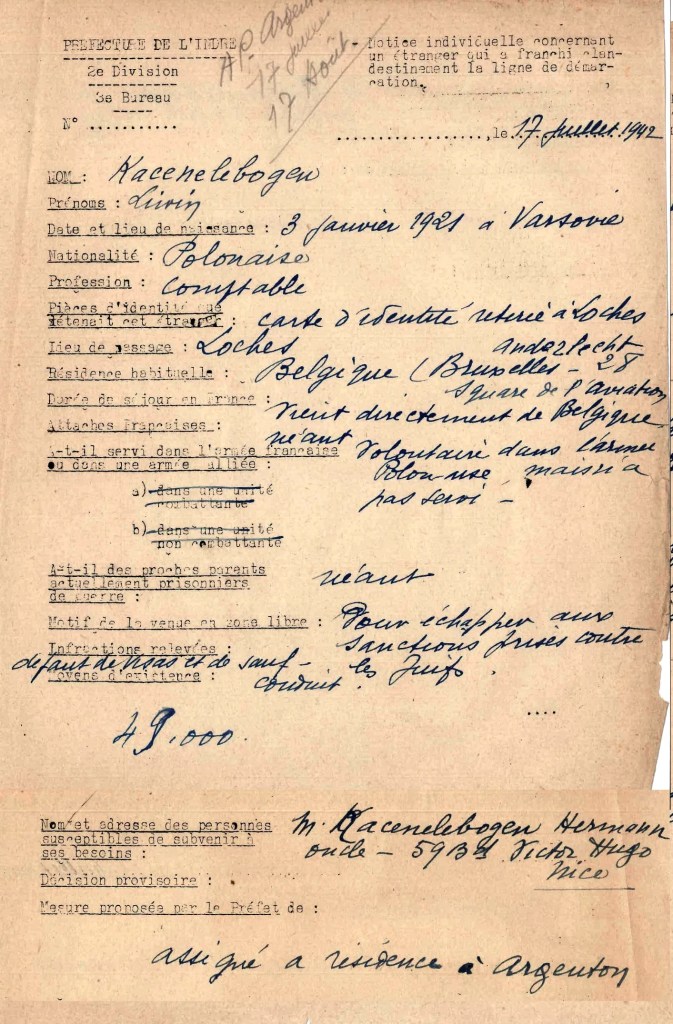 PREFECTURE DE L'INDRE
2e Division
3e Bureau
N° ...........
A.P. Argenton
17 juillet
17 Août
Notice individuelle concernant
un étranger qui a franchi clan-
destinement la ligne de démar-
cation.
.................., le 17 Juillet 1942
NOM : Kacenelebogen
Prénoms :
Date et lieu de naissance : 3 janvier 1921 à Varsovie
Nationalité : Polonaise
Profession : Comptable
Pièces d'identité que
détenait cet étranger : carte d'identité retirée à Loches
Lieu de passage : Loches
Résidence habituelle : Belgique (Bruxelles - Anderlecht 28
Square de l'Aviation
Durée de séjour en France : Vient directement de Belgique
Attaches françaises : néant
A-t-il servi dans l'armée française
ou dans une armée alliée : Volontaire dans l'armée
Polonaise mais n'a
pas servi -
a) dans une unité
combattante
b) dans une unité
non combattante
A-t-il des proches parents
actuellement prisonniers
de guerre : néant
Motif de la venue en zone libre : Pour échapper aux
sanctions prises contre
les Juifs.
Infractions relevées :
défaut de visas et de sauf-
conduit.
Moyens d'existence :
....
49.000.
Nom et adresse des personnes
susceptibles de subvenir à
ses besoins : M. Kacenelebogen Hermann
oncle - 59 Bd Victor Hugo
Nice
Décision provisoire :
Mesure proposée par le Préfet de :
assigné a résidence à Argenton